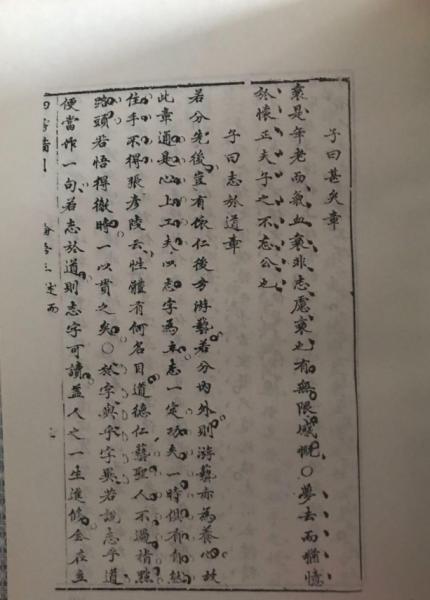 子曰甚矣章
衰是年老而氣血衰非志慮衰也有無限感慨〇夢去而猶憶
於懷正夫子之不忘公也
子曰志於道章
若分先後豈有依仁後方游藝若分內外則游藝亦為養心故
此章通是心上工夫以志字為主志一定功夫一時俱有自然
住手不得張彥陵云性體有何名目道德仁藝聖人不過指點
路頭若悟得徹時一以貫之矣〇於字與乎字異若說志乎道
便當作一句若志於道則志字可讀蓋人之一生進修全在立
四書
述而